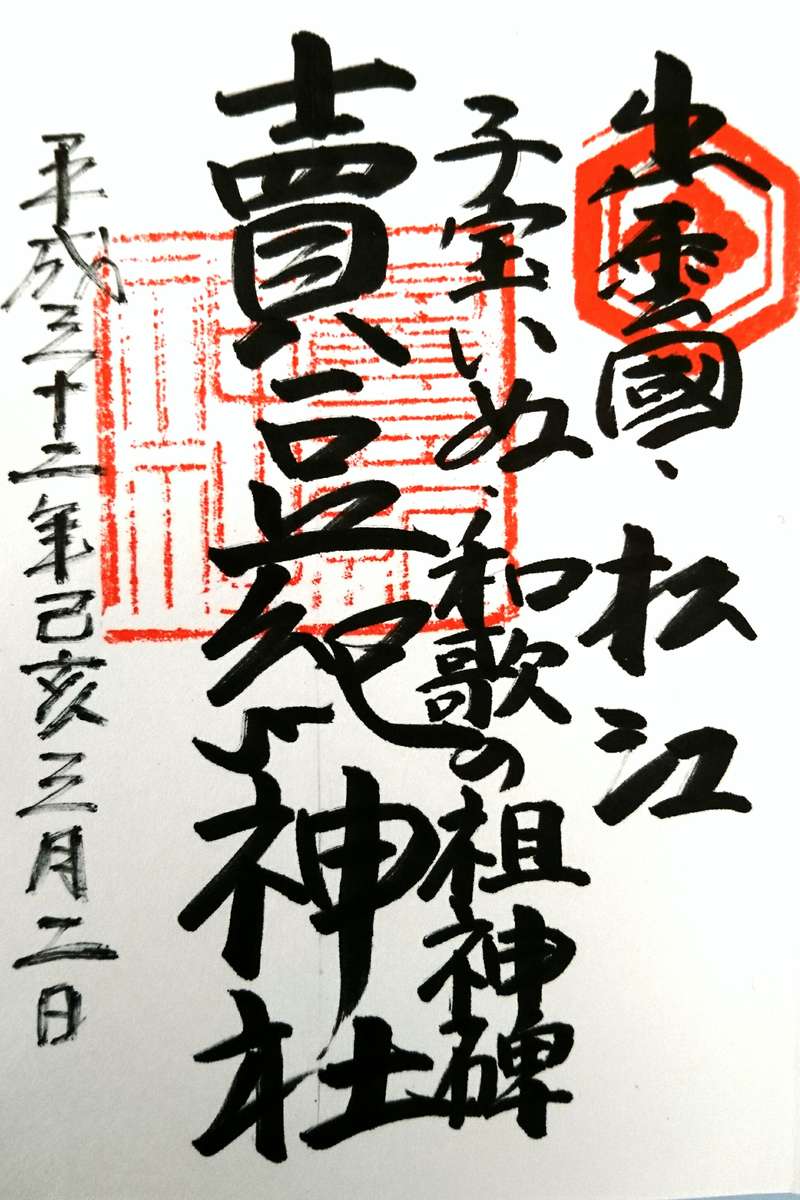 出雲國、松江
子宝いぬ、和歌の祖神碑
賣豆紀神社
平成三十二年己亥三月二日